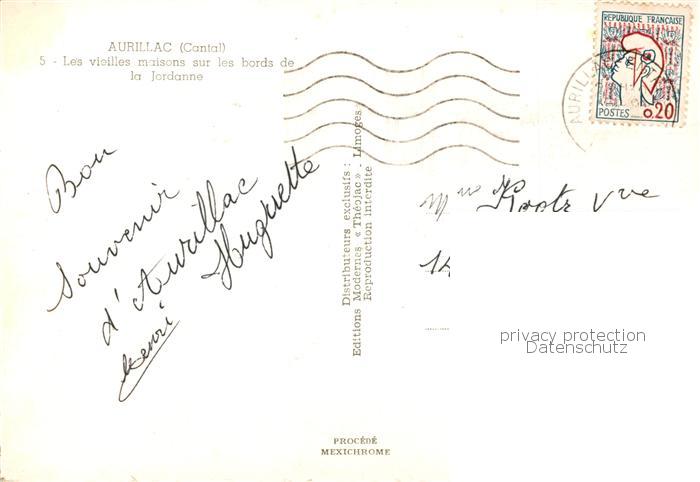 AURILLAC (Cantal)
5 - Les vieilles maisons sur les bords de
la Jordanne
RÉPUBLIQUE FRANÇAISE
POSTES 0,20
AURILLAC
Bon
Souvenir
d'Aurillac
Huguette
Henri
Distributeurs exclusifs :
Editions Modernes « Théojac » - Limoges
Reproduction interdite
Mme Vve
14
privacy protection
Datenschutz
PROCÉDÉ
MEXICHROME